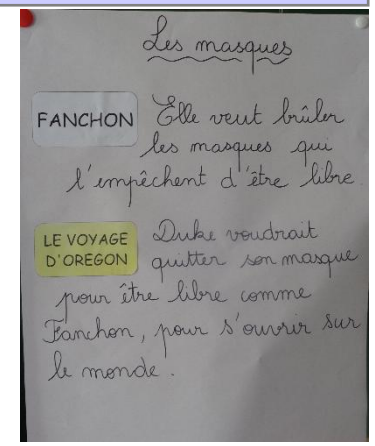 Les masques
FANCHON Elle veut brûler
les masques qui
l'empêchent d'être libre
LE VOYAGE
D'OREGON
Duke voudrait
quitter son masque
pour être libre comme
Fanchon, pour s'ouvrir sur
le monde.